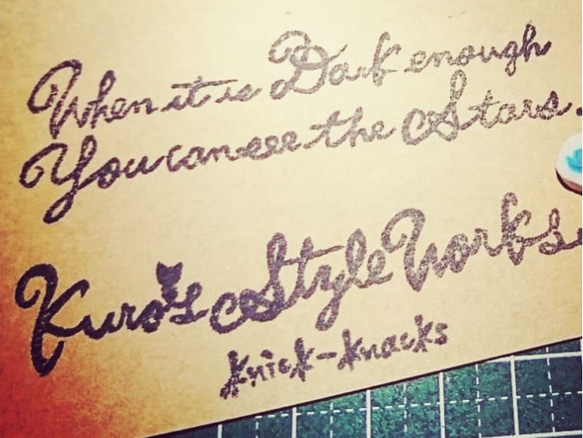 When it is Dark enough
You can see the Stars.
Kuro's Style Works
Knick-Knacks